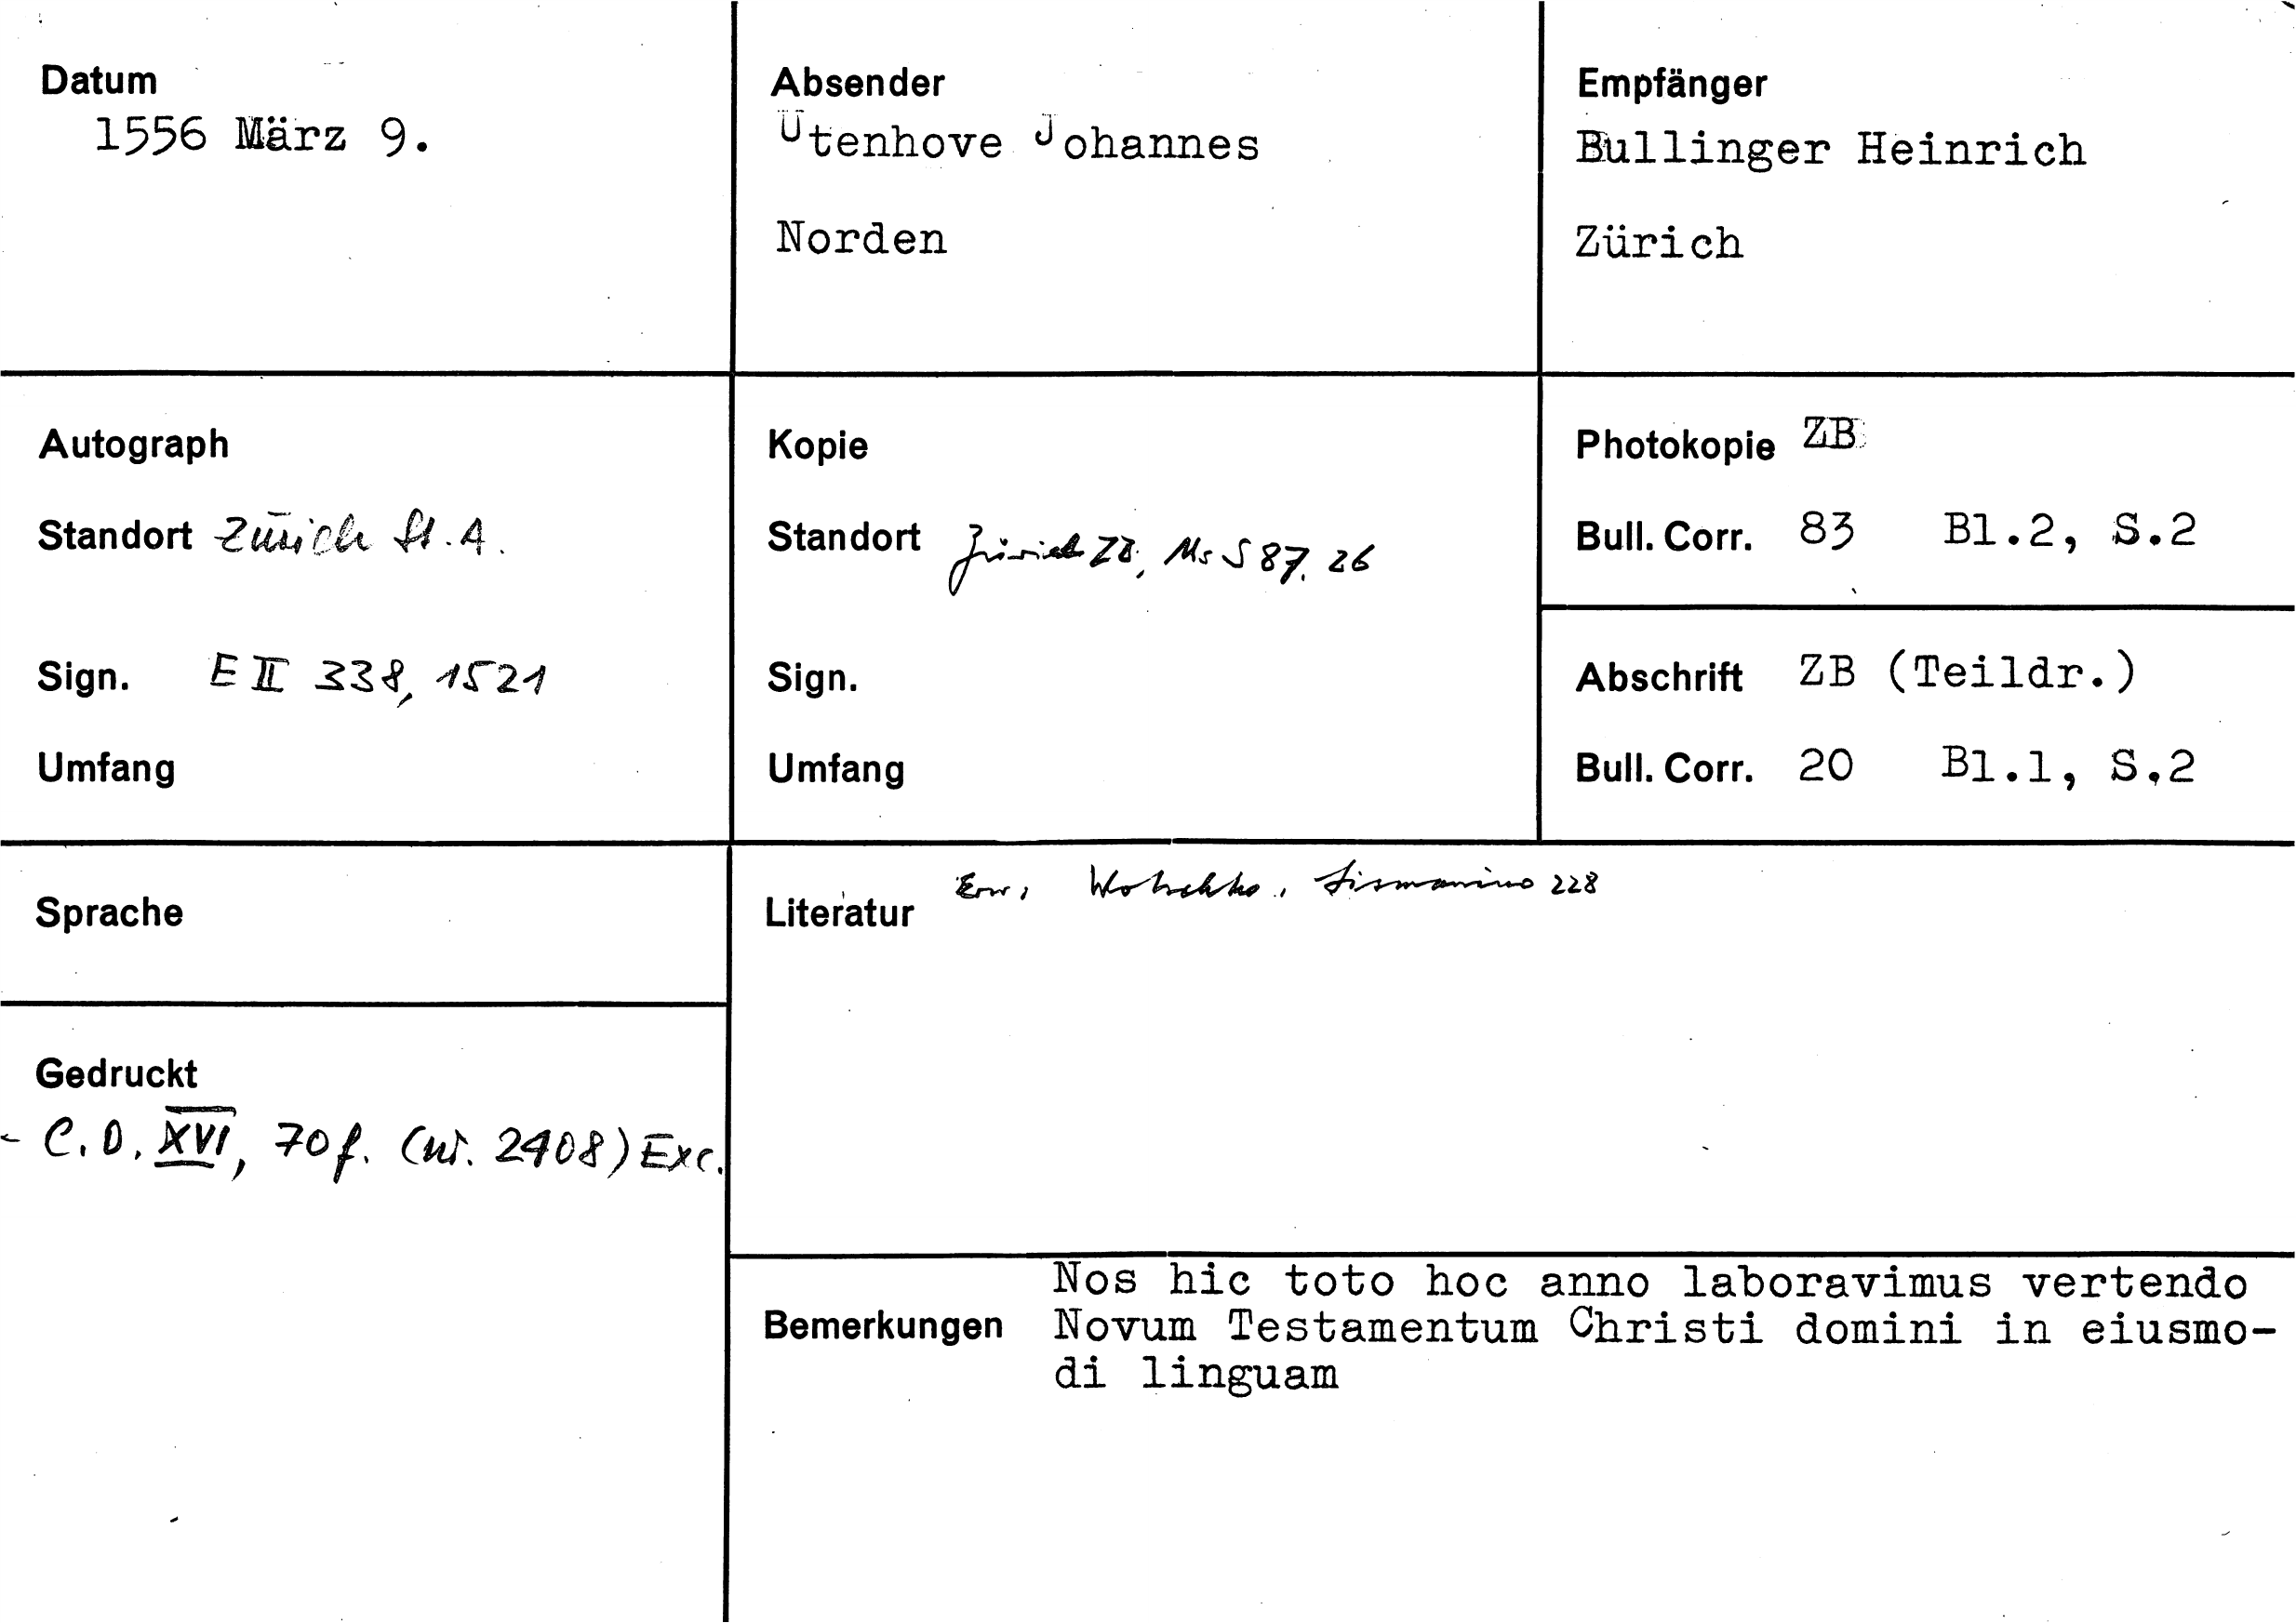 Datum
1556 März 9.
Absender
Utenhove Johannes
Norden
Empfänger
Bullinger Heinrich
Zürich
Autograph
Standort Zürich St.A.
Sign. E II 338, 1521
Umfang
Kopie
Standort Zürich ZB, Ms S 87, 26
Sign.
Umfang
Photokopie ZB
Bull. Corr. 83 Bl.2, S.2
Abschrift ZB (Teildr.)
Bull. Corr. 20 Bl.1, S.2
Sprache
Literatur Erw: Wotschke, Lismanino 228
Gedruckt
- C.O. XVI, 70f. (nr. 2408) Exc.
Bemerkungen
Nos hic toto hoc anno laboravimus vertendo
Novum Testamentum Christi domini in eiusmo-
di linguam